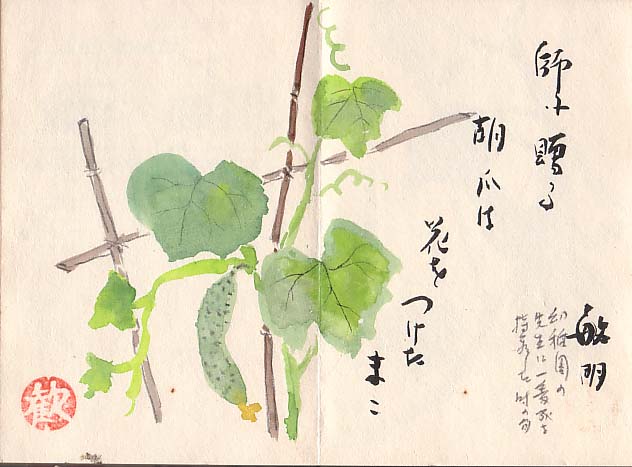 師に贈る
胡瓜は
花を
つけた
まゝ
敏明
幼稚園の
先生に一番成を
持参した時の句
歓